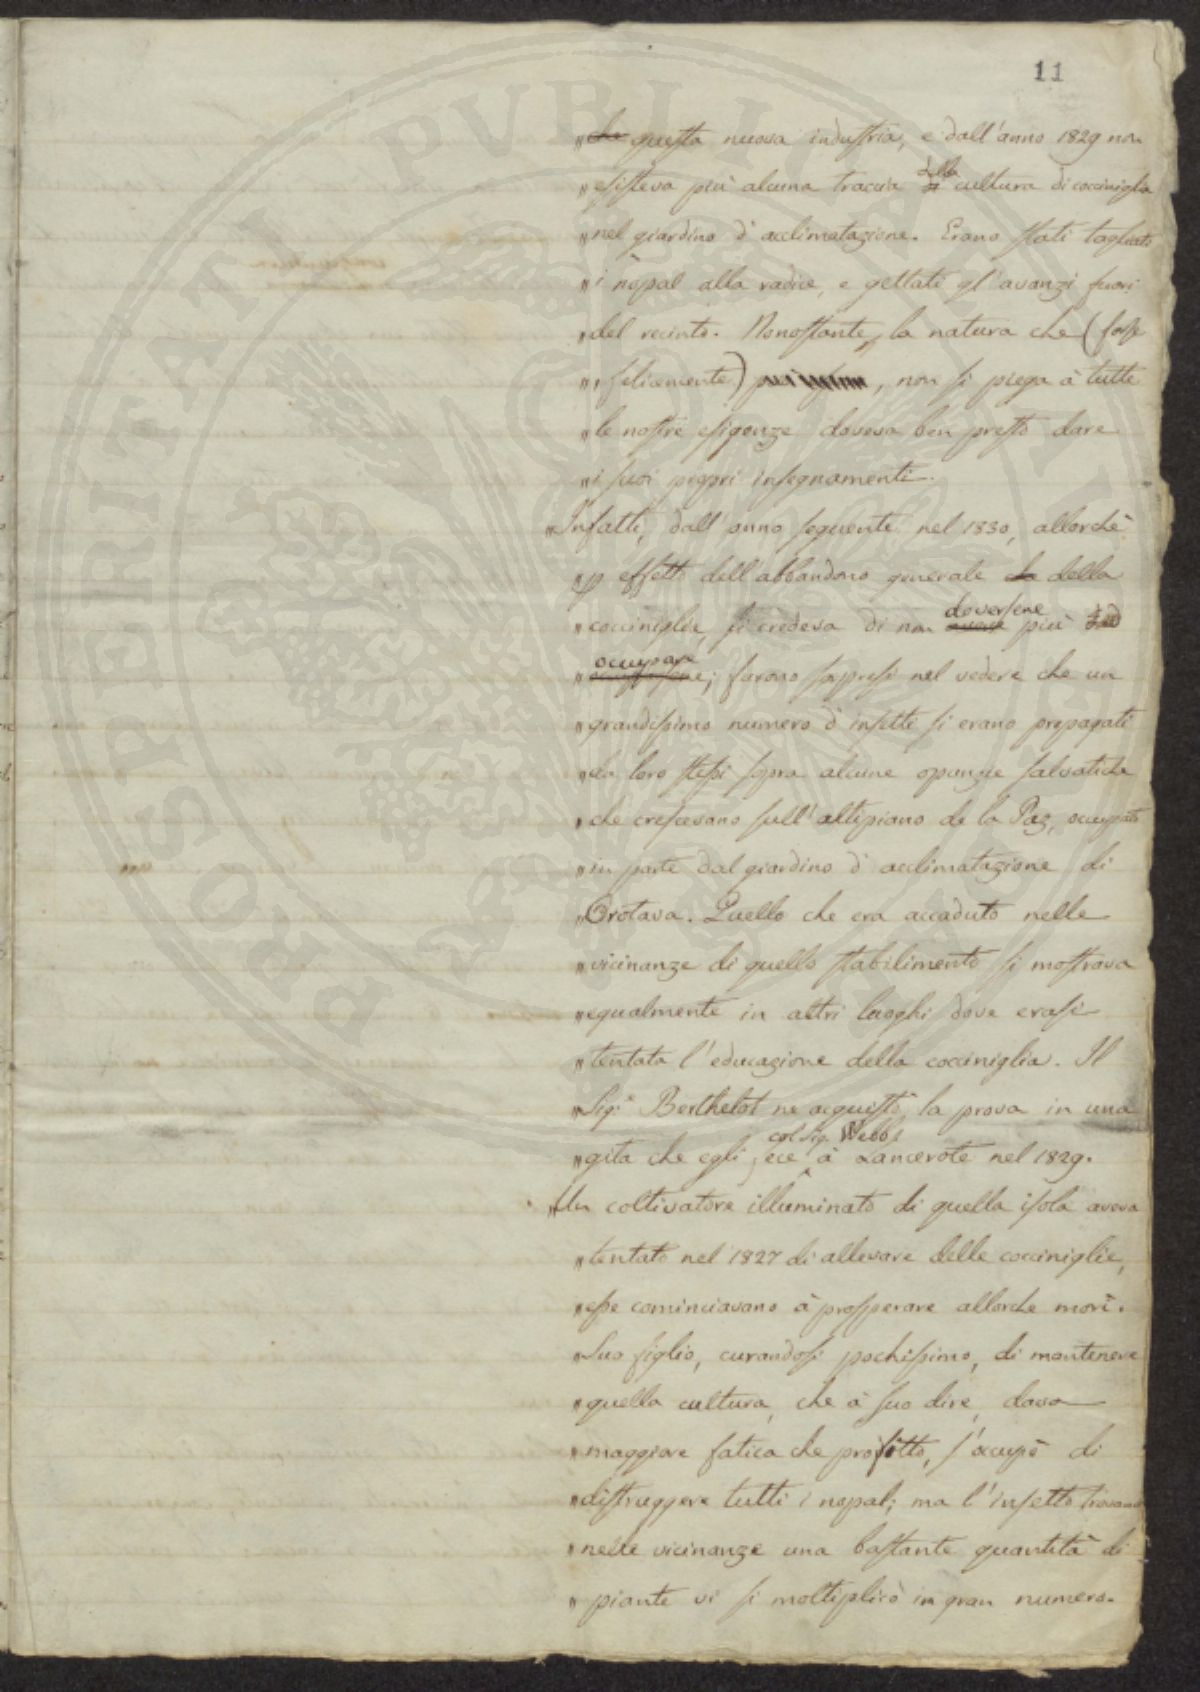 11
„ questa nuova industria, e dall'anno 1829 non
„esisteva più alcuna traccia della cultura di cocciniglia
„nel giardino d'acclimatazione. Erano stati tagliati
„i nopal alla radice, e gettati gl'avanzi fuori
„del recinto. Nonostante, la natura che (forse
„felicemente) , non si piega à tutte
„le nostre esigenze doveva ben presto dare
„i suoi propri insegnamenti.
„Infatti, dall'anno seguente nel 1830, allorchè
„p effetto dell'abbandono generale della
„cocciniglia, si credeva di non doversene più
„occupare; furono sorpresi nel vedere che un
„grandissimo numero d'insetti si erano propagati
„da loro stessi sopra alcune opunzie salvatiche
„che crescevano sull'altipiano de la Paz, occupato
„in parte dal giardino d'acclimatazione di
„Orotava. Quello che era accaduto nelle
„vicinanze di quello stabilimento si mostrava
„egualmente in altri luoghi dove erasi
„tentata l'educazione della cocciniglia. Il
„Sig.r Berthelot ne acquistò la prova in una
„gita che egli fece col Sig. Webb à Lancerote nel 1829.
„Un coltivatore illuminato di quella isola aveva
„tentato nel 1827 di allevare delle cocciniglie,
„esse cominciavano à prosperare allorche morì.
„Suo figlio, curandosi pochissimo, di mantenere
„quella cultura, che à suo dire, dava
„maggiore fatica che profitto, s'occupò di
„distruggere tutti i nopal; ma l'insetto trovando
„nelle vicinanze una bastante quantità di
„piante vi si moltiplicò in gran numero.